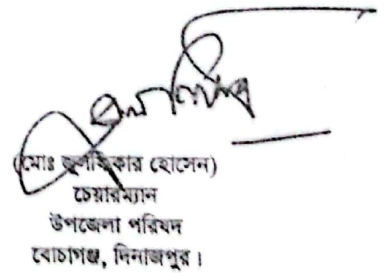 (মোঃ জুলফিকার হোসেন)
চেয়ারম্যান
উপজেলা পরিষদ
বোচাগঞ্জ, দিনাজপুর।